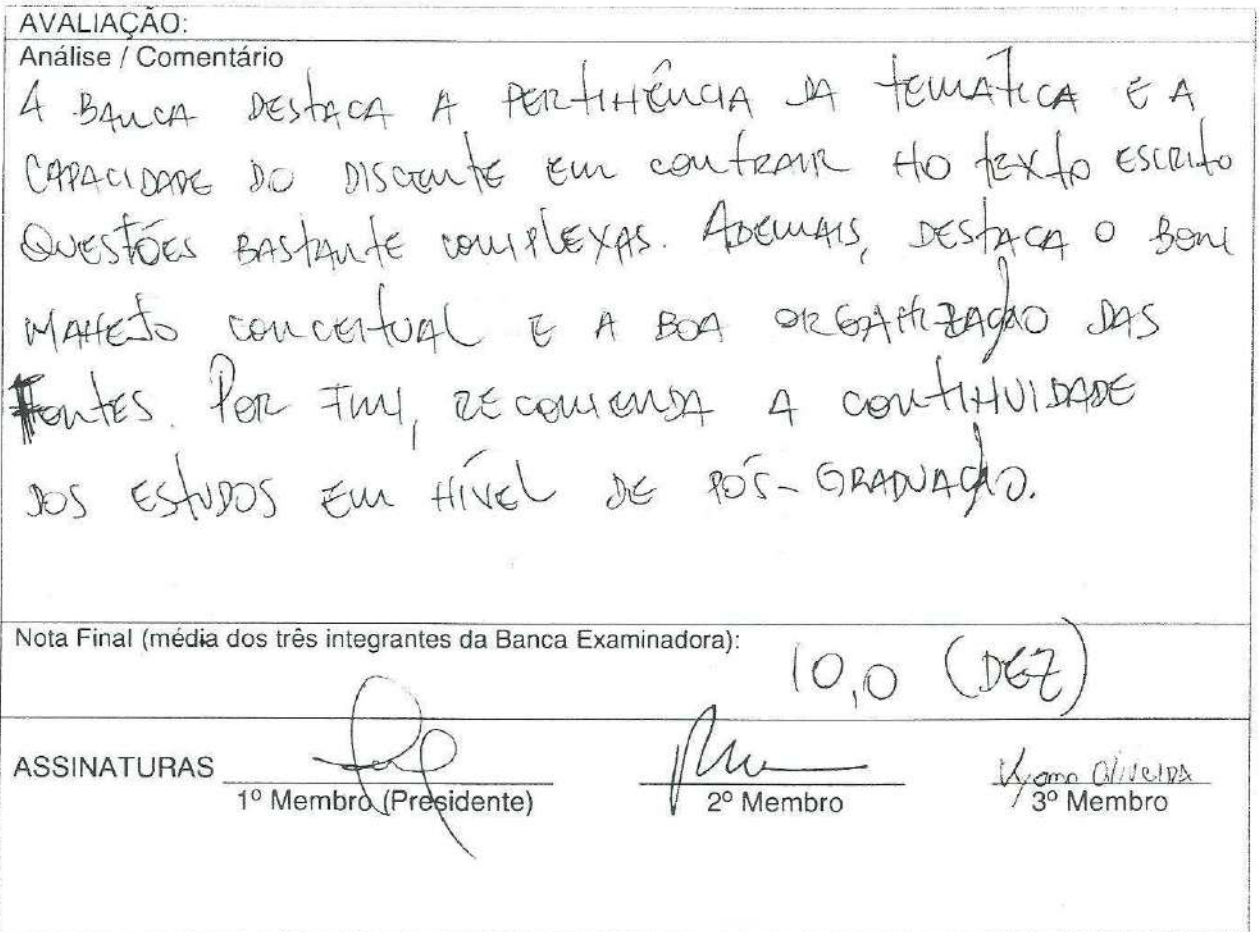 AVALIAÇÃO:
Análise / Comentário
A BANCA DESTACA A PERTINÊNCIA DA TEMÁTICA E A
CAPACIDADE DO DISCENTE EM CONTRAIR NO TEXTO ESCRITO
QUESTÕES BASTANTE COMPLEXAS. ADEMAIS, DESTACA O BOM
MANEJO CONCEITUAL E A BOA ORGANIZAÇÃO DAS
FONTES. POR FIM, RECOMENDA A CONTINUIDADE
DOS ESTUDOS EM NÍVEL DE PÓS-GRADUAÇÃO.
Nota Final (média dos três integrantes da Banca Examinadora): 10,0 (DEZ)
ASSINATURAS Oliveira
1º Membro (Presidente) 2º Membro 3º Membro